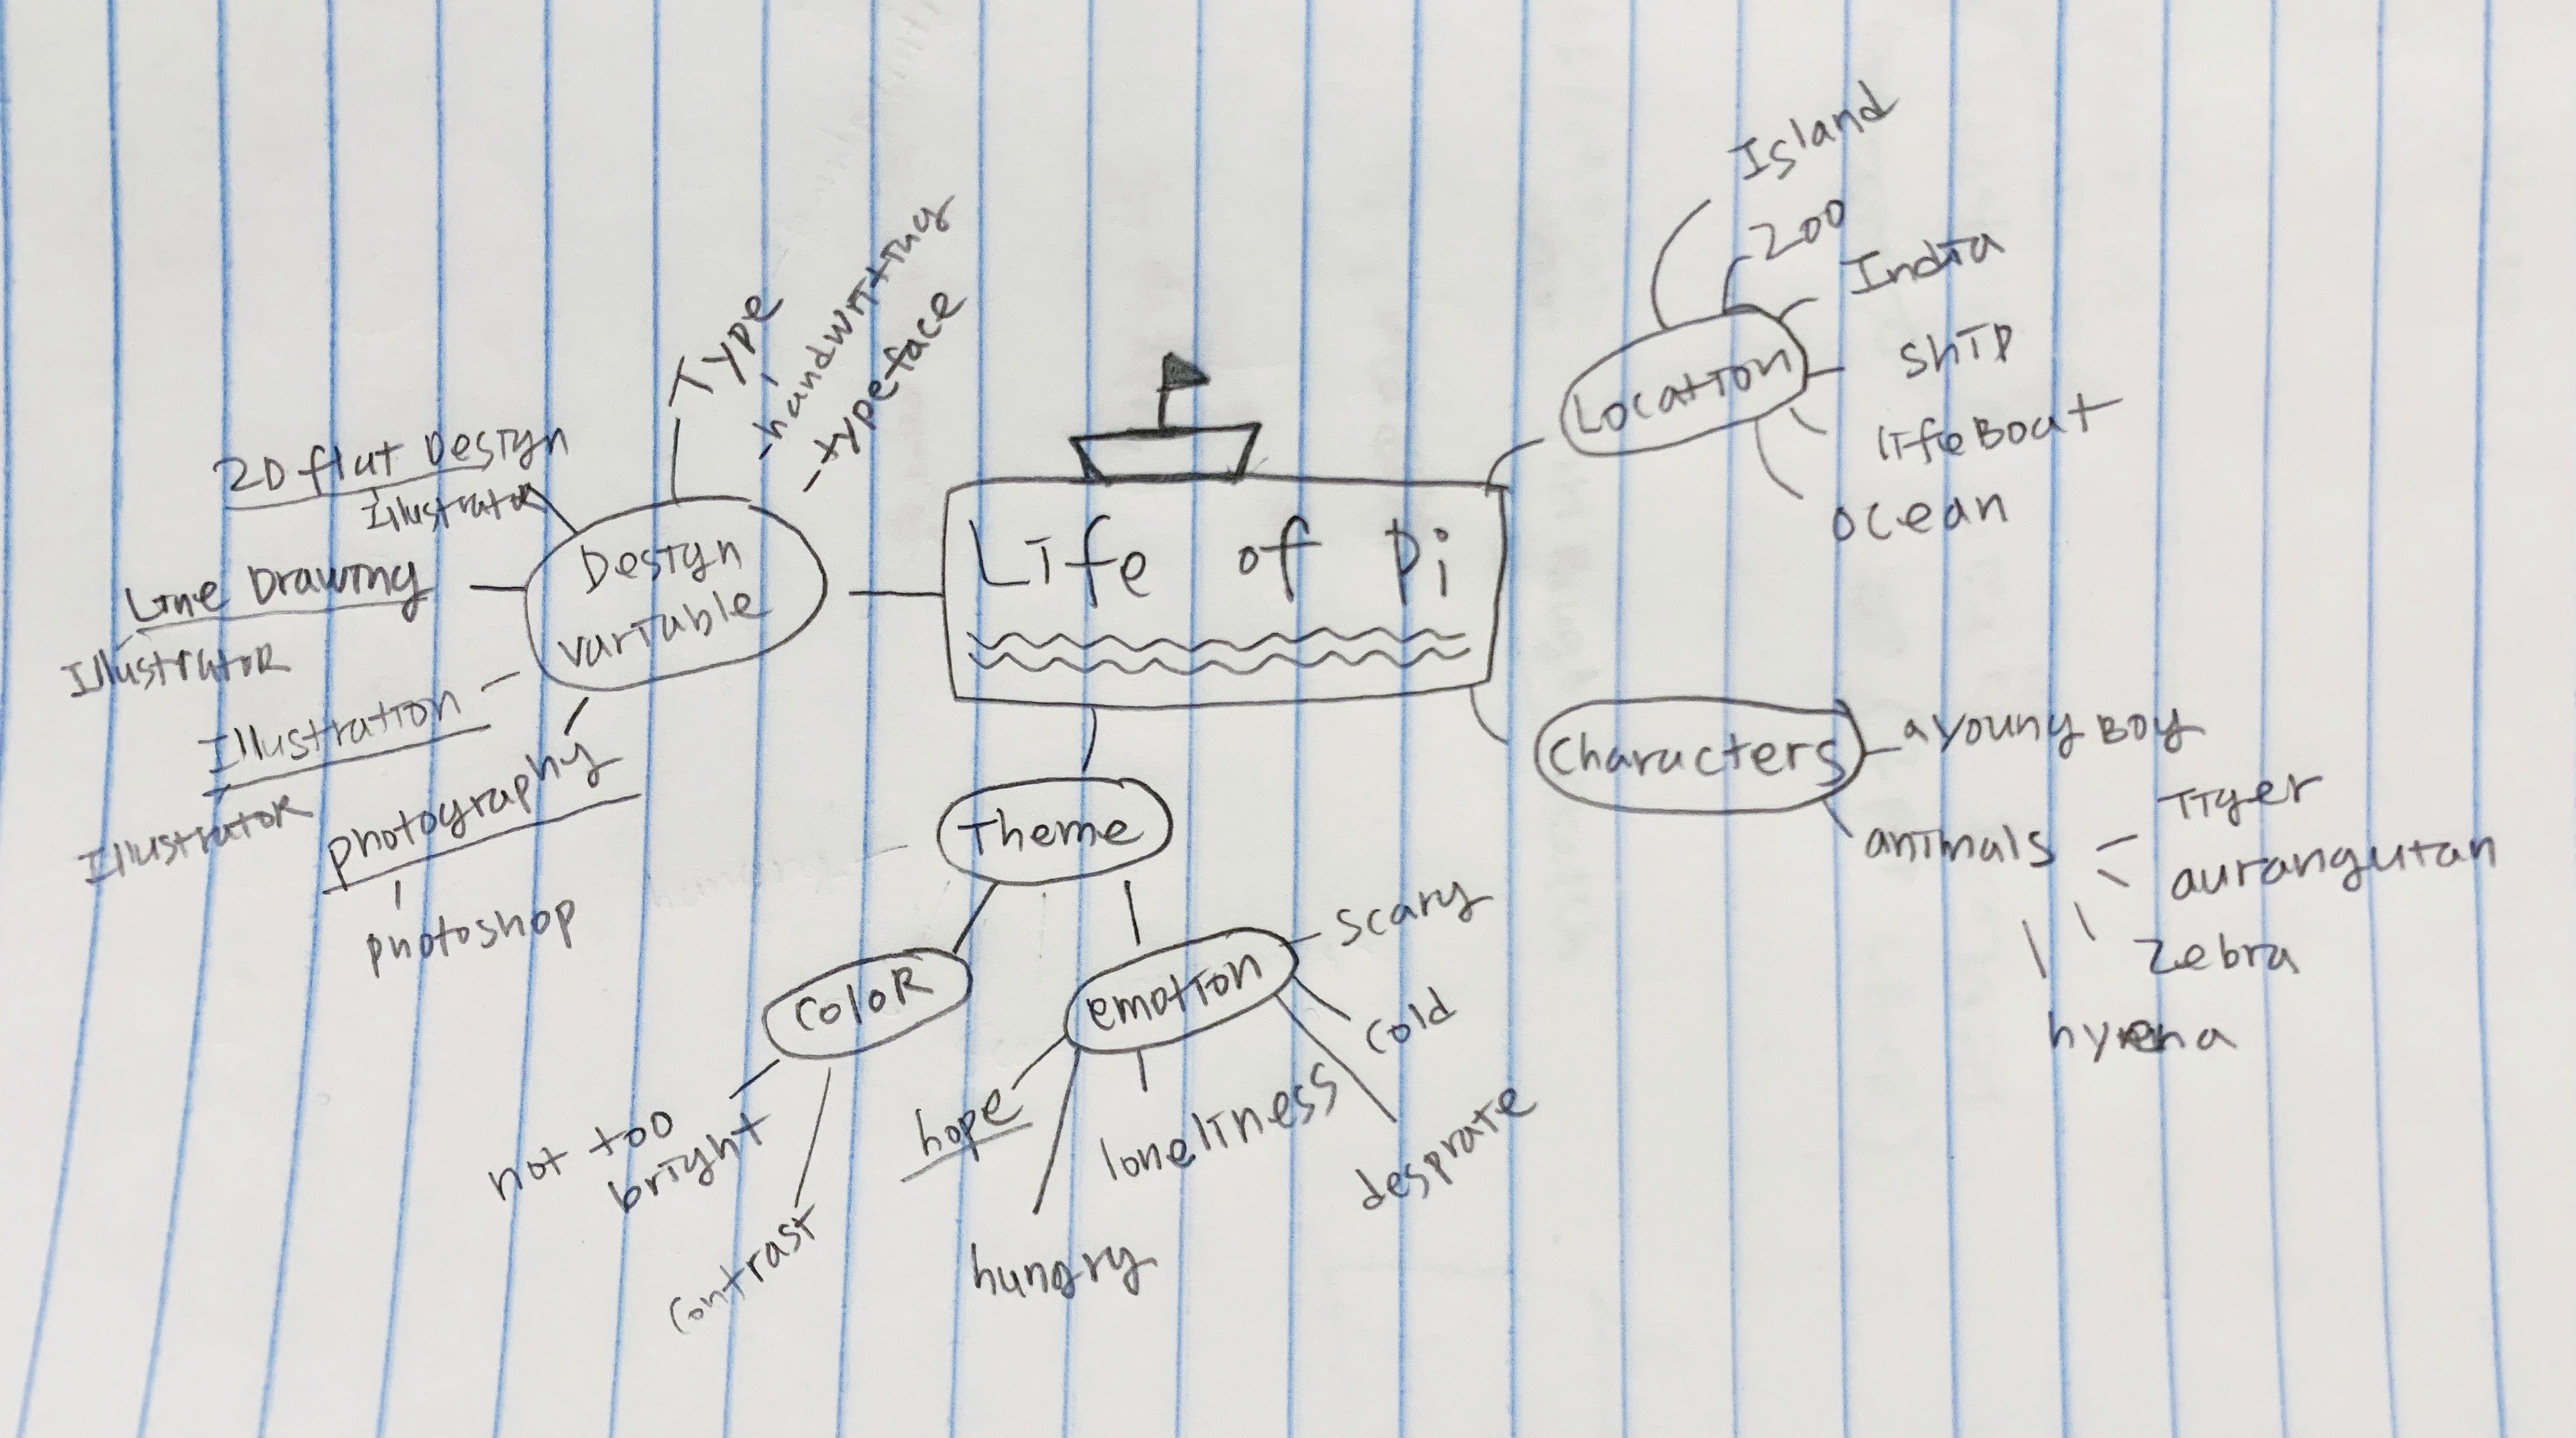 Life of Pi
Location
Island
Zoo
India
ship
lifeBoat
ocean
Characters
a young Boy
animals
Tiger
aurangutan
Zebra
hyena
Theme
ColoR
not too
bright
contrast
emotion
scary
cold
desprate
loneliness
hungry
hope
Design
variable
Type
- handwriting
- typeface
2D flat Design
Illustrator
Line Drawing
IllustratoR
Illustration
IllustratoR
photography
photoshop